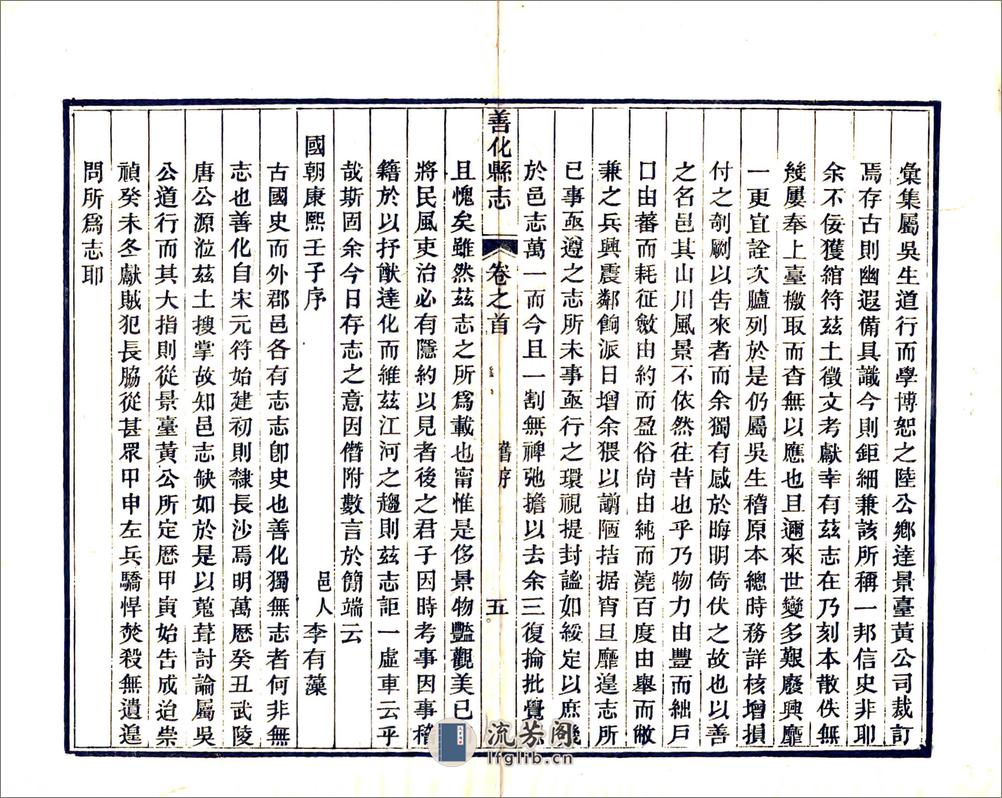 彙集屬吳生道行而學博恕之陸公鄉達景臺黃公司裁訂
焉存古則幽遐備具識今則鉅細兼該所稱一邦信史非耶
余不佞獲綰符茲土徵文考獻幸有茲志在乃刻本散佚無
幾屢奉上臺檄取而杳無以應也且邇來世變多艱廢興靡
一更宜詮次臚列於是仍屬吳生稽原本總時務詳核增損
付之剞劂以告來者而余獨有感於晦明倚伏之故也以善
之名邑其山川風景不依然往昔也乎乃物力由豐而絀戶
口由蕃而耗征斂由約而盈俗尚由純而澆百度由舉而敝
兼之兵興震鄰餉派日增余猥以謭陋拮据宵旦靡遑志所
已事亟遵之志所未事亟行之環視提封謐如綏定以庶幾
於邑志萬一而今且一割無裨弛擔以去余三復掄批覺
善化縣志
卷之首
舊序
五
且愧矣雖然茲志之所爲載也甯惟是侈景物豔觀美已
將民風吏治必有隱約以見者後之君子因時考事因事稽
籍於以抒猷達化而維茲江河之趨則茲志詎一虛車云乎
哉斯固余今日存志之意因僭附數言於簡端云
國朝康熙壬子序
邑人李有藻
古國史而外郡邑各有志志卽史也善化獨無志者何非無
志也善化自宋元符始建初則隸長沙焉明萬歷癸丑武陵
唐公源涖茲土搜掌故知邑志缺如於是以蒐葺討論屬吳
公道行而其大指則從景臺黃公所定歷甲寅始告成迨崇
禎癸未冬獻賊犯長脇從甚眾甲申左兵驕悍焚殺無遺遑
問所爲志耶
流芳阁
lfglib.cn